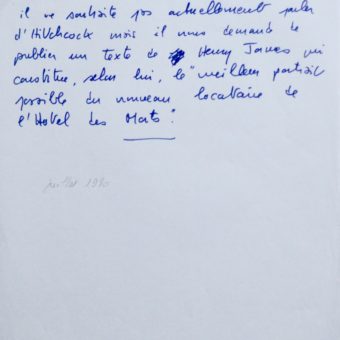 il ne souhaite pas actuellement parler
d'Hitchcock mais il nous demande de
publier un texte de Henry James qui
constitue, selon lui, le "meilleur portrait
possible du nouveau locataire de
l'Hôtel des Morts".
juillet 1980